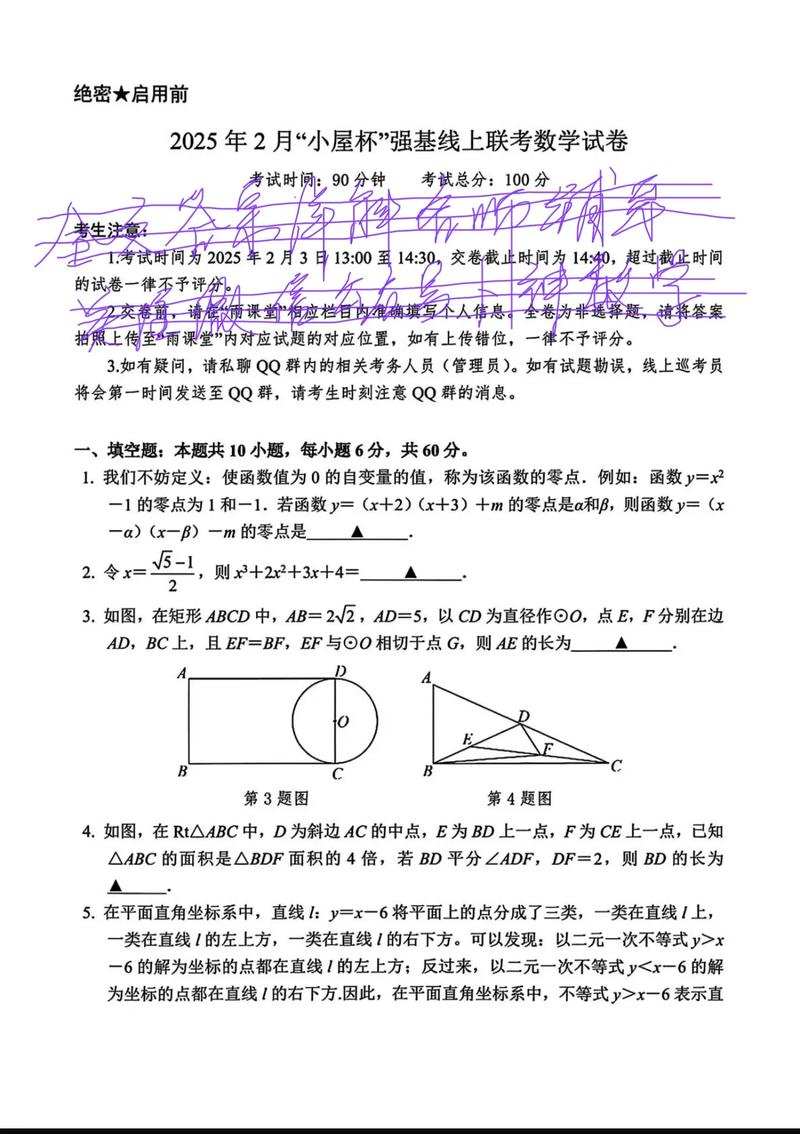 绝密★启用前
2025 年 2 月“小屋杯”强基线上联考数学试卷
考试时间：90 分钟 考试总分：100 分
考生注意：
1.考试时间为 2025 年 2 月 3 日 13:00 至 14:30，交卷截止时间为 14:40，超过截止时间
的试卷一律不予评分。
2.交卷前，请在“雨课堂”相应栏目内准确填写个人信息。全卷为非选择题，请将答案
拍照上传至“雨课堂”内对应试题的对应位置，如有上传错位，一律不予评分。
3.如有疑问，请私聊 QQ 群内的相关考务人员（管理员）。如有试题勘误，线上巡考员
将会第一时间发送至 QQ 群，请考生时刻注意 QQ 群的消息。
一、填空题：本题共 10 小题，每小题 6 分，共 60 分。
1. 我们不妨定义：使函数值为 0 的自变量的值，称为该函数的零点．例如：函数 y＝x²
－1 的零点为 1 和－1．若函数 y＝（x＋2）（x＋3）＋m 的零点是α和β，则函数 y＝（x
－α）（x－β）－m 的零点是____▲____．
2. 令 x＝(√5－1)/2，则 x³＋2x²＋3x＋4＝____▲____．
3. 如图，在矩形 ABCD 中，AB＝2√2，AD＝5，以 CD 为直径作⊙O，点 E，F 分别在边
AD，BC 上，且 EF＝BF，EF 与⊙O 相切于点 G，则 AE 的长为____▲____．
A D O B C
A D E F B C
第 3 题图 第 4 题图
4. 如图，在 Rt△ABC 中，D 为斜边 AC 的中点，E 为 BD 上一点，F 为 CE 上一点，已知
△ABC 的面积是△BDF 面积的 4 倍，若 BD 平分∠ADF，DF＝2，则 BD 的长为
▲____．
5. 在平面直角坐标系中，直线 l：y＝x－6 将平面上的点分成了三类，一类在直线 l 上，
一类在直线 l 的左上方，一类在直线 l 的右下方。可以发现：以二元一次不等式 y＞x
－6 的解为坐标的点都在直线 l 的左上方；反过来，以二元一次不等式 y＜x－6 的解
为坐标的点都在直线 l 的右下方.因此，在平面直角坐标系中，不等式 y＞x－6 表示直